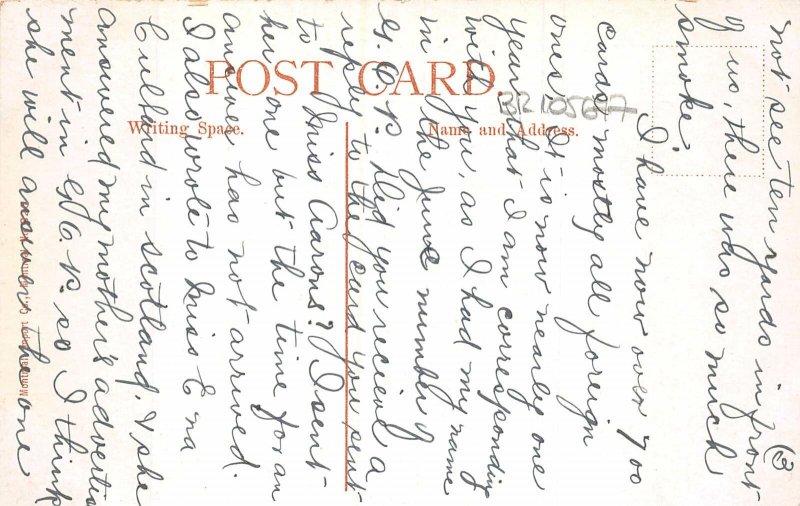 (3
not see ten yards in front
of us, there was so much
smoke.
I have now over 700
cards mostly all foreign
ones. It is now nearly one
year that I am corresponding
with you, as I had my name
in the June number of
G. C. P. Did you recieve a
reply to the card you sent
to Miss Aarons? I sent
her one but the time for an
answer has not arrived.
I also wrote to Miss E na
Cullard in Scotland. & she
answered my mother's advertise
ment in G. C. P. so I think
she will answer the one
POST CARD.
Writing Space.
Name and Address.